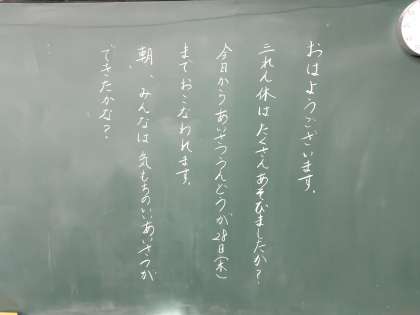 おはようございます。
三れん休はたくさんあそびましたか?
今日からあいさつうんどうが28日(木)
までおこなわれます。
朝、みんなは気もちのいいあいさつが
できたかな?